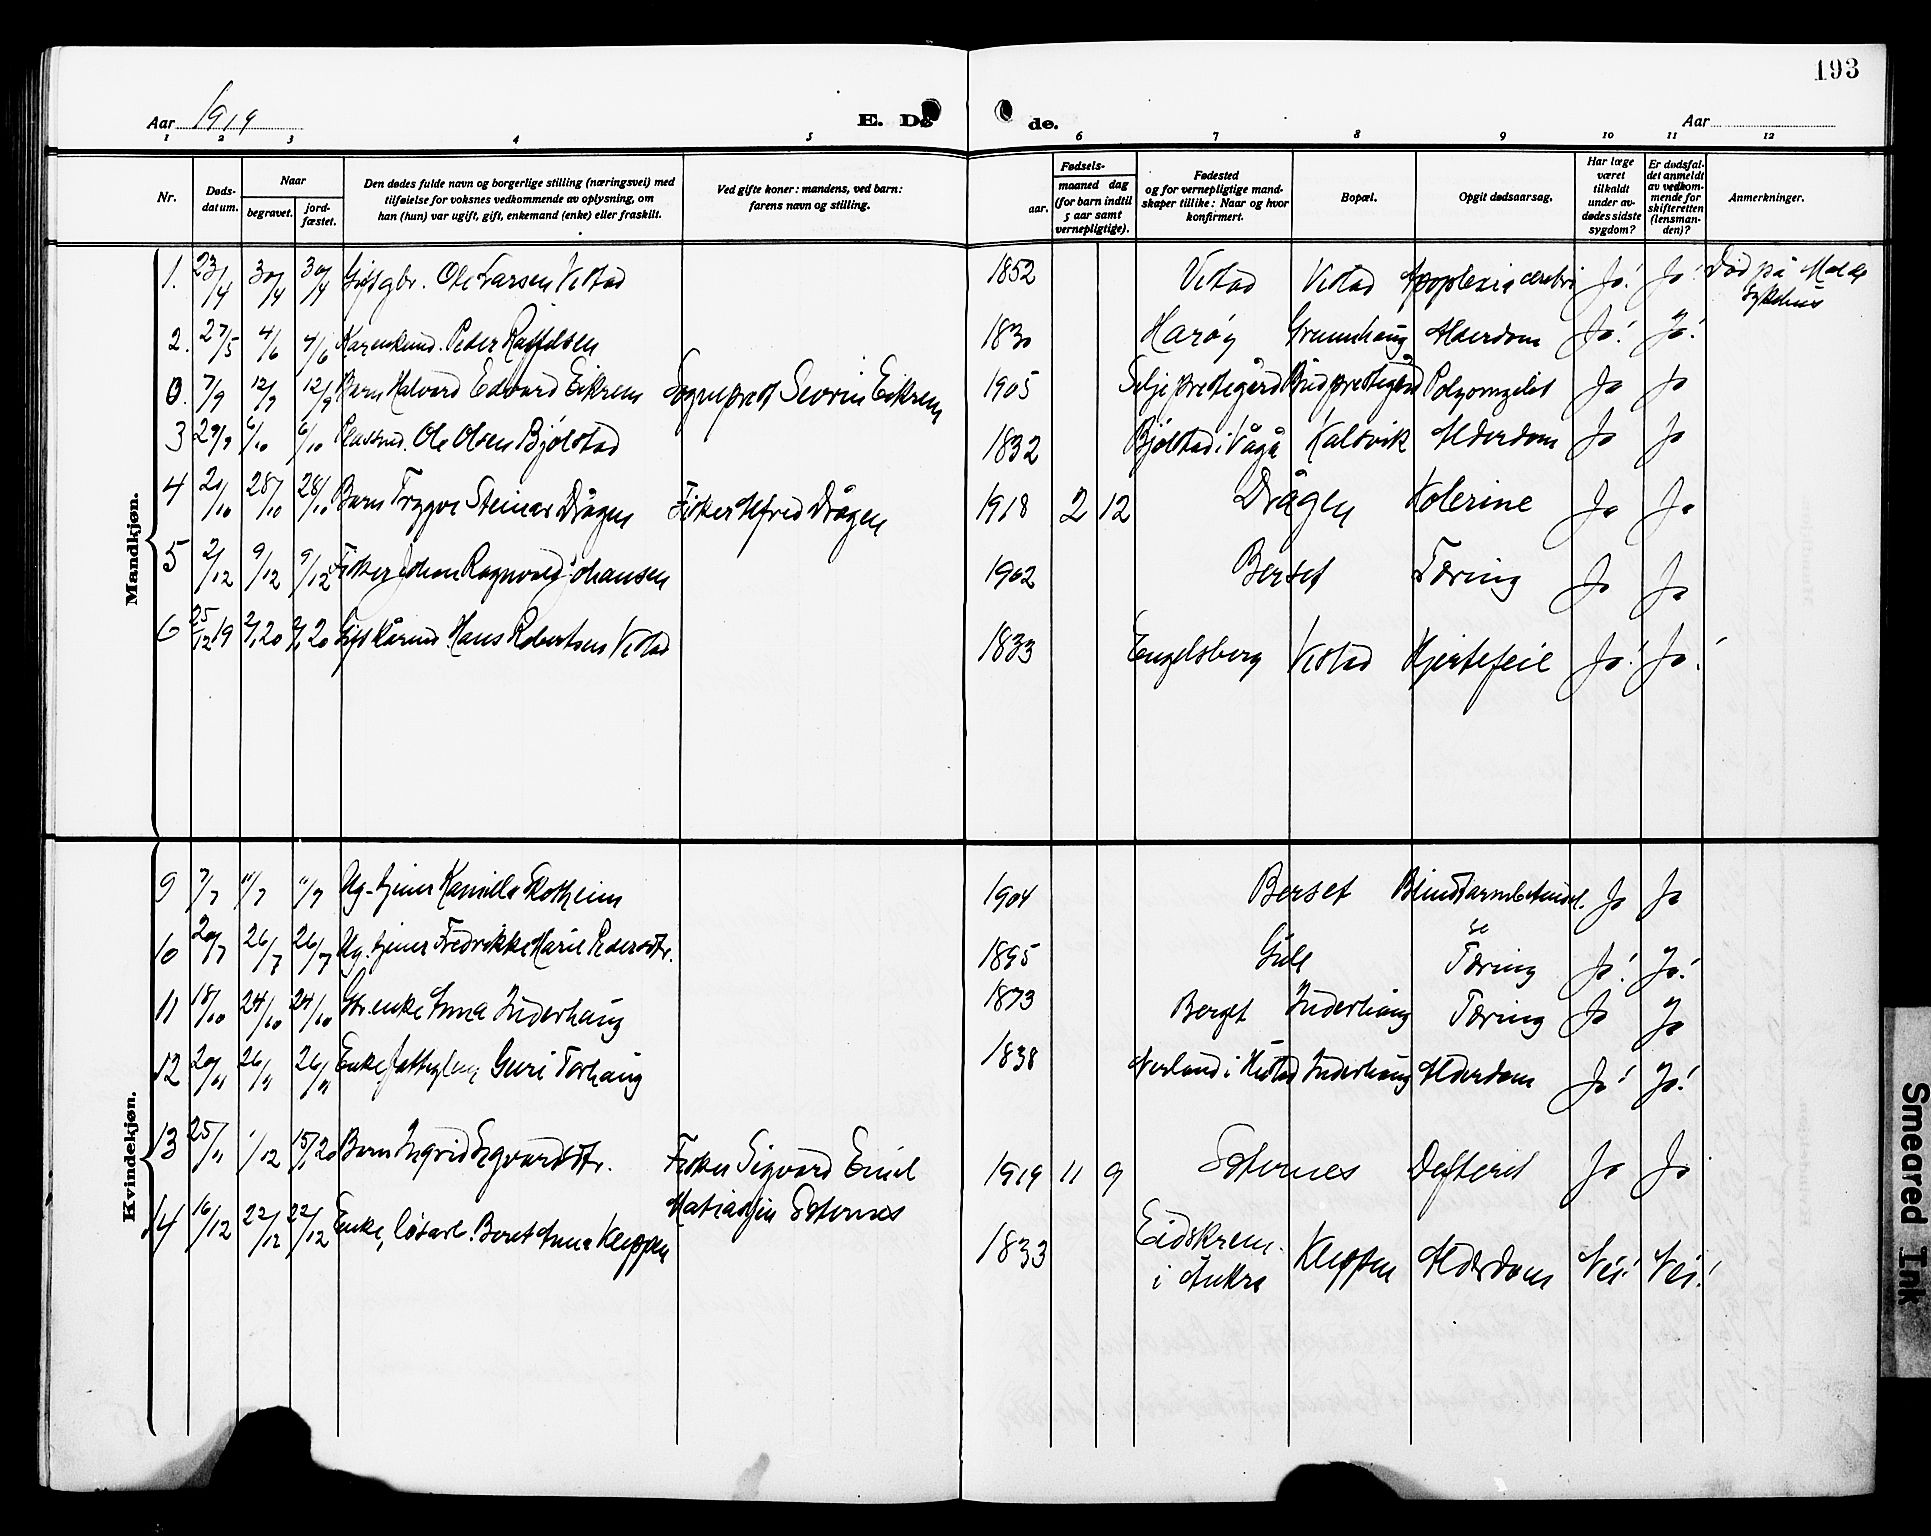 193
Aar 1919 E. Dø de. Aar
1 2 3 4 5 6 7 8 9 10 11 12
Nr. Døds-datum. Naar begravet. jord-fæstet. Den dødes fulde navn og borgerlige stilling (næringsvei) med tilføielse for voksnes vedkommende av oplysning, om han (hun) var ugift, gift, enkemand (enke) eller fraskilt. Ved gifte koner: mandens, ved barn: farens navn og stilling. Fødsels- aar. maaned dag (for barn indtil 5 aar samt vernepligtige). Fødested og for vernepligtige mand-skaper tillike: Naar og hvor konfirmert. Bopæl. Opgit dødsaarsag. Har læge været tilkaldt under av-dødes sidste sygdom? Er dødsfal-det anmeldt av vedkom-mende for skifteretten (lensman-den)? Anmerkninger.
Mandkjøn.
1. 23/4 30/4 30/4 Gift gbr. Ole Larsen Vestad 1852 Vestad Vestad Apoplexia cerebri Ja! Ja! Død på Molde
Sykehus
2. 27/5 4/6 4/6 Kaarenkmd. Peder 1830 Harøy Alderdom Ja! Ja!
0. 7/9 12/9 12/9 Barn Halvard Edvard Eikrem Sogneprest Severin Eikrem 1905 Selje prestegård Bud prestegård Ja Ja
3 29/9 6/10 6/10 Ole Olsen Bjølstad 1832 Bjølstad i Vågå Kalsvik Alderdom Ja Ja
4 21/10 28/10 28/10 Barn Trygve Steinar Drågen Fisker Alfred Drågen 1918 2 12 Drågen Kolerine Ja Ja
5 2/12 9/12 9/12 Fisker Johan Ragnvald Johansen 1902 Berset Tæring Ja Ja
6 25/12 19 2/1 20 2/1 20 Gift kårmd. Hans Robertsen Vestad 1833 Engelsberg Vestad Hjertefeil Ja! Ja!
Kvindekjøn.
9 7/7 11/7 11/7 Ug. tjener Kamilla Skotheim 1904 Berset Blindtarmbetændel. Ja Ja
se
10 20/7 26/7 26/7 Ug. tjener Fredrikke Marie Pedersdtr. 1895 Gule Tæring Ja! Ja!
11 18/10 24/10 24/10 Gbr. enke Anna Inderhaug 1873 Berget Inderhaug Tæring Ja Ja
12 20/11 26/11 26/11 Enke, fattiglem Guri Torhaug 1838 Nerland i Hustad Inderhaug Alderdom Ja! Ja!
13 25/11 1/12 15/1 20 Barn Ingrid Sigvardsdtr. Fisker Sigvard Emil 1919 11 9 Stornes Difteri Ja Ja
Matiassen Stornes
14 16/12 22/12 22/12 Enke, løsarb. Beret Anna Kleppen 1833 Eidskrem Kleppen Alderdom Nei! Nei!
i Aukra
Smeared Ink